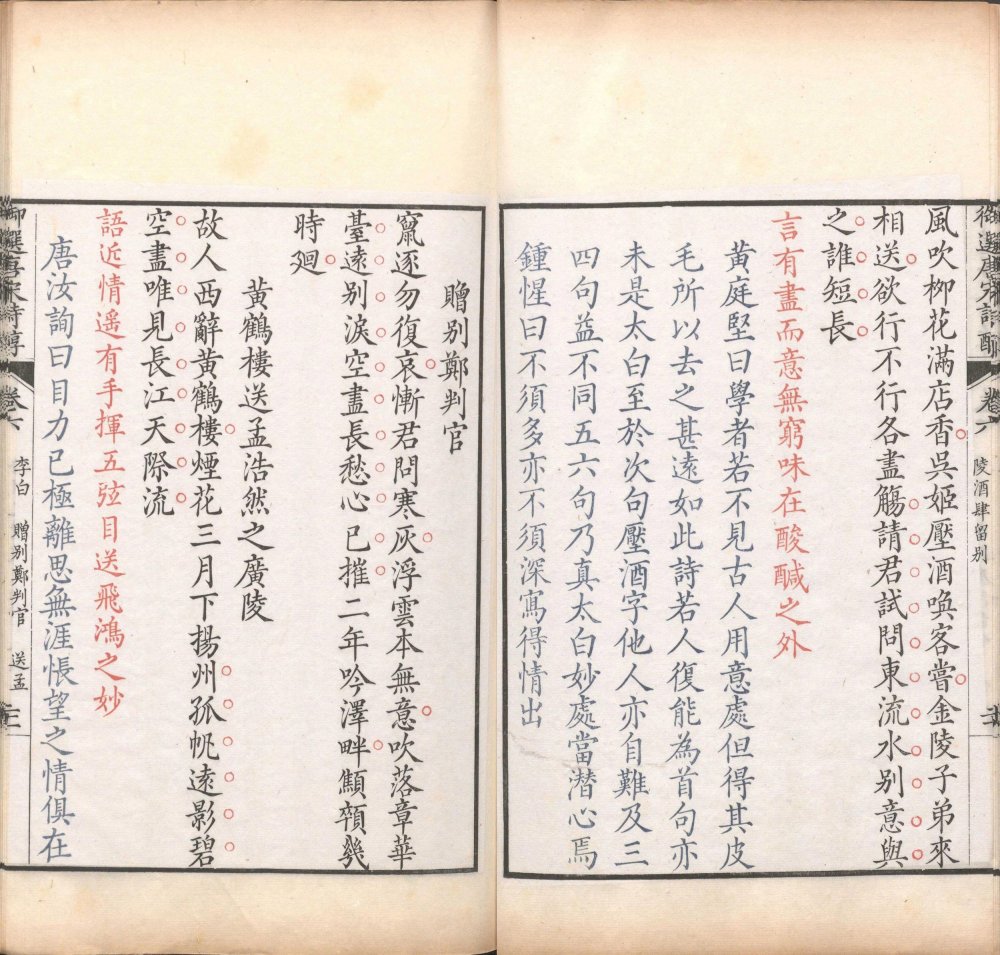 風吹柳花滿店香吳姬壓酒喚客嘗金陵子弟來
相送欲行不行各盡觴請君試問東流水別意與
之誰短長
言有盡而意無窮味在酸醎之外
黃庭堅曰學者若不見古人用意處但得其皮
毛所以去之甚遠如此詩若人復能為首句亦
未是太白至於次句壓酒字他人亦自難及三
四句益不同五六句乃真太白妙處當潛心焉
鍾惺曰不須多亦不須深寫得情出
贈別鄭判官
竄逐勿復哀慚君問寒灰浮雲本無意吹落章華
臺遠別淚空盡長愁心已摧二年吟澤畔顦顇幾
時廻
黃鶴樓送孟浩然之廣陵
故人西辭黃鶴樓煙花三月下揚州孤帆遠影碧
空盡唯見長江天際流
語近情遥有手揮五弦目送飛鴻之妙
唐汝詢曰目力已極離思無涯悵望之情俱在
御選唐宋詩醇
卷六
陵酒肆留別
御選唐宋詩醇
卷六
李白
贈別鄭判官
送孟